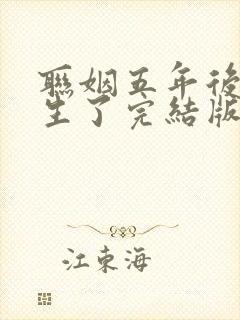 聯姻五年後
生了完結版
江東海